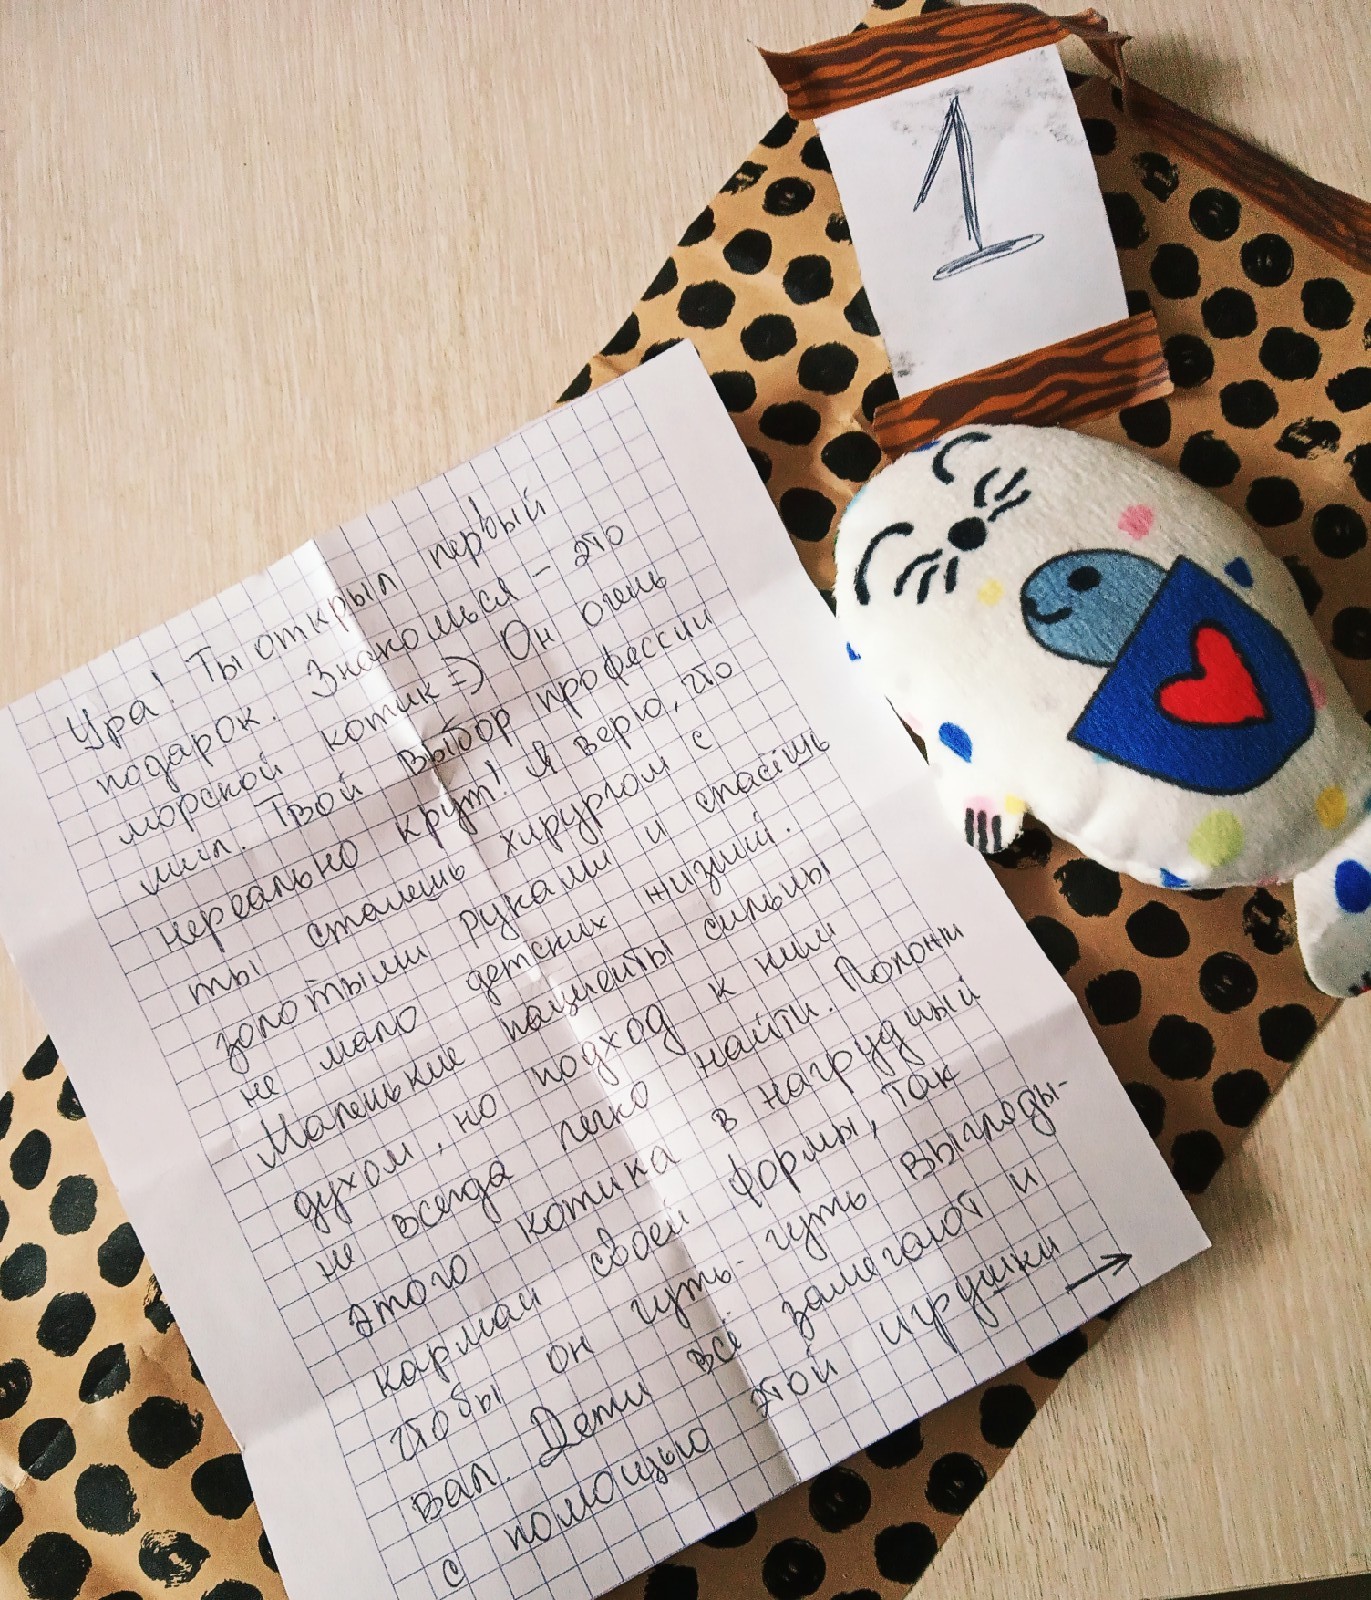 1
Ура! Ты открыл первый
подарок. Знакомься - это
морской котик =) Он очень
мил. Твой выбор профессии
нереально крут! Я верю, что
ты станешь хирургом с
золотыми руками и спасёшь
не мало детских жизней.
Маленькие пациенты сильны
духом, но подход к ним
не всегда легко найти. Положи
этого котика в нагрудный
карман своей формы, так
чтобы он чуть-чуть выгляды-
вал. Дети всё замечают и
с помощью этой игрушки →